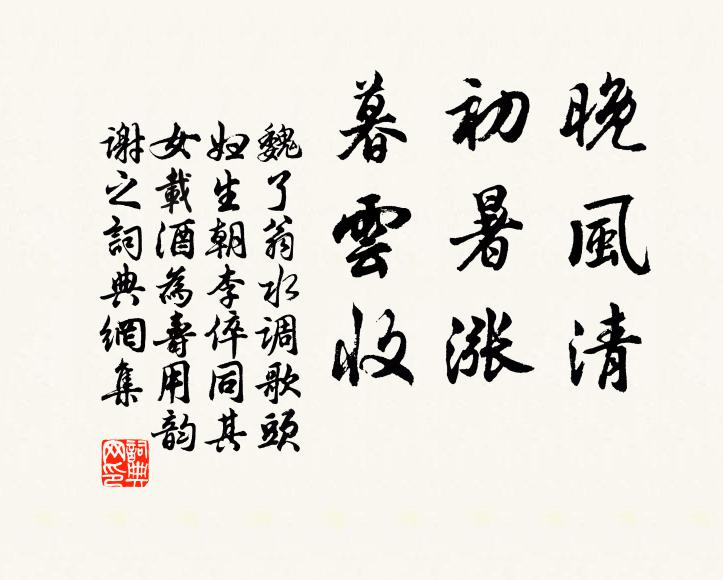 晚風清
初暑漲
暮雲收
魏了翁水调歌頭
妇生朝李倅同其
女載酒為壽用韵
谢之詞典網集
詞典网印